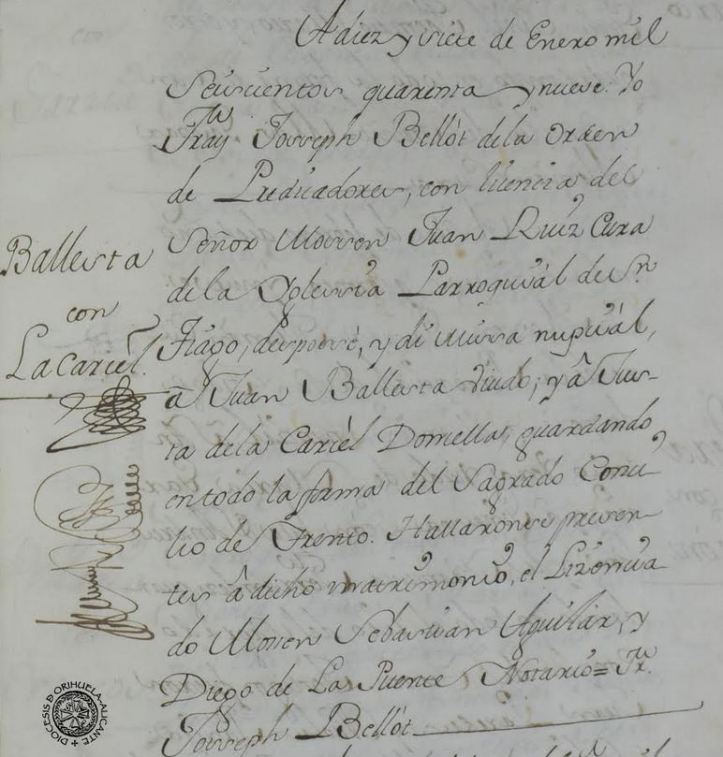 A diez y siete de Enero mil
Seiscientos quarenta y nueve. Yo
Fray Joseph Bellót de la Orden
de Predicadores, con licencia del
Señor Mossen Juan Ruiz Cura
de la Yglessia Parroquiál de Sn.
Tiago, despossé, y dí missa nupciál,
â Juan Ballesta viudo; y â Jus-
ta de la Carcél Donsella, guardando
en todo la forma del Sagrado Conci
lio de Trento. Hallaronse presen-
tes â dicho matrimonio, el Lizencia
do Mossen Sebastian Aguilár, y
Diego de La Puente Notario = Fr.
Joseph Bellót
Ballesta
con
La Carcél.
DIOCESIS D ORIHUELA-ALICANTE